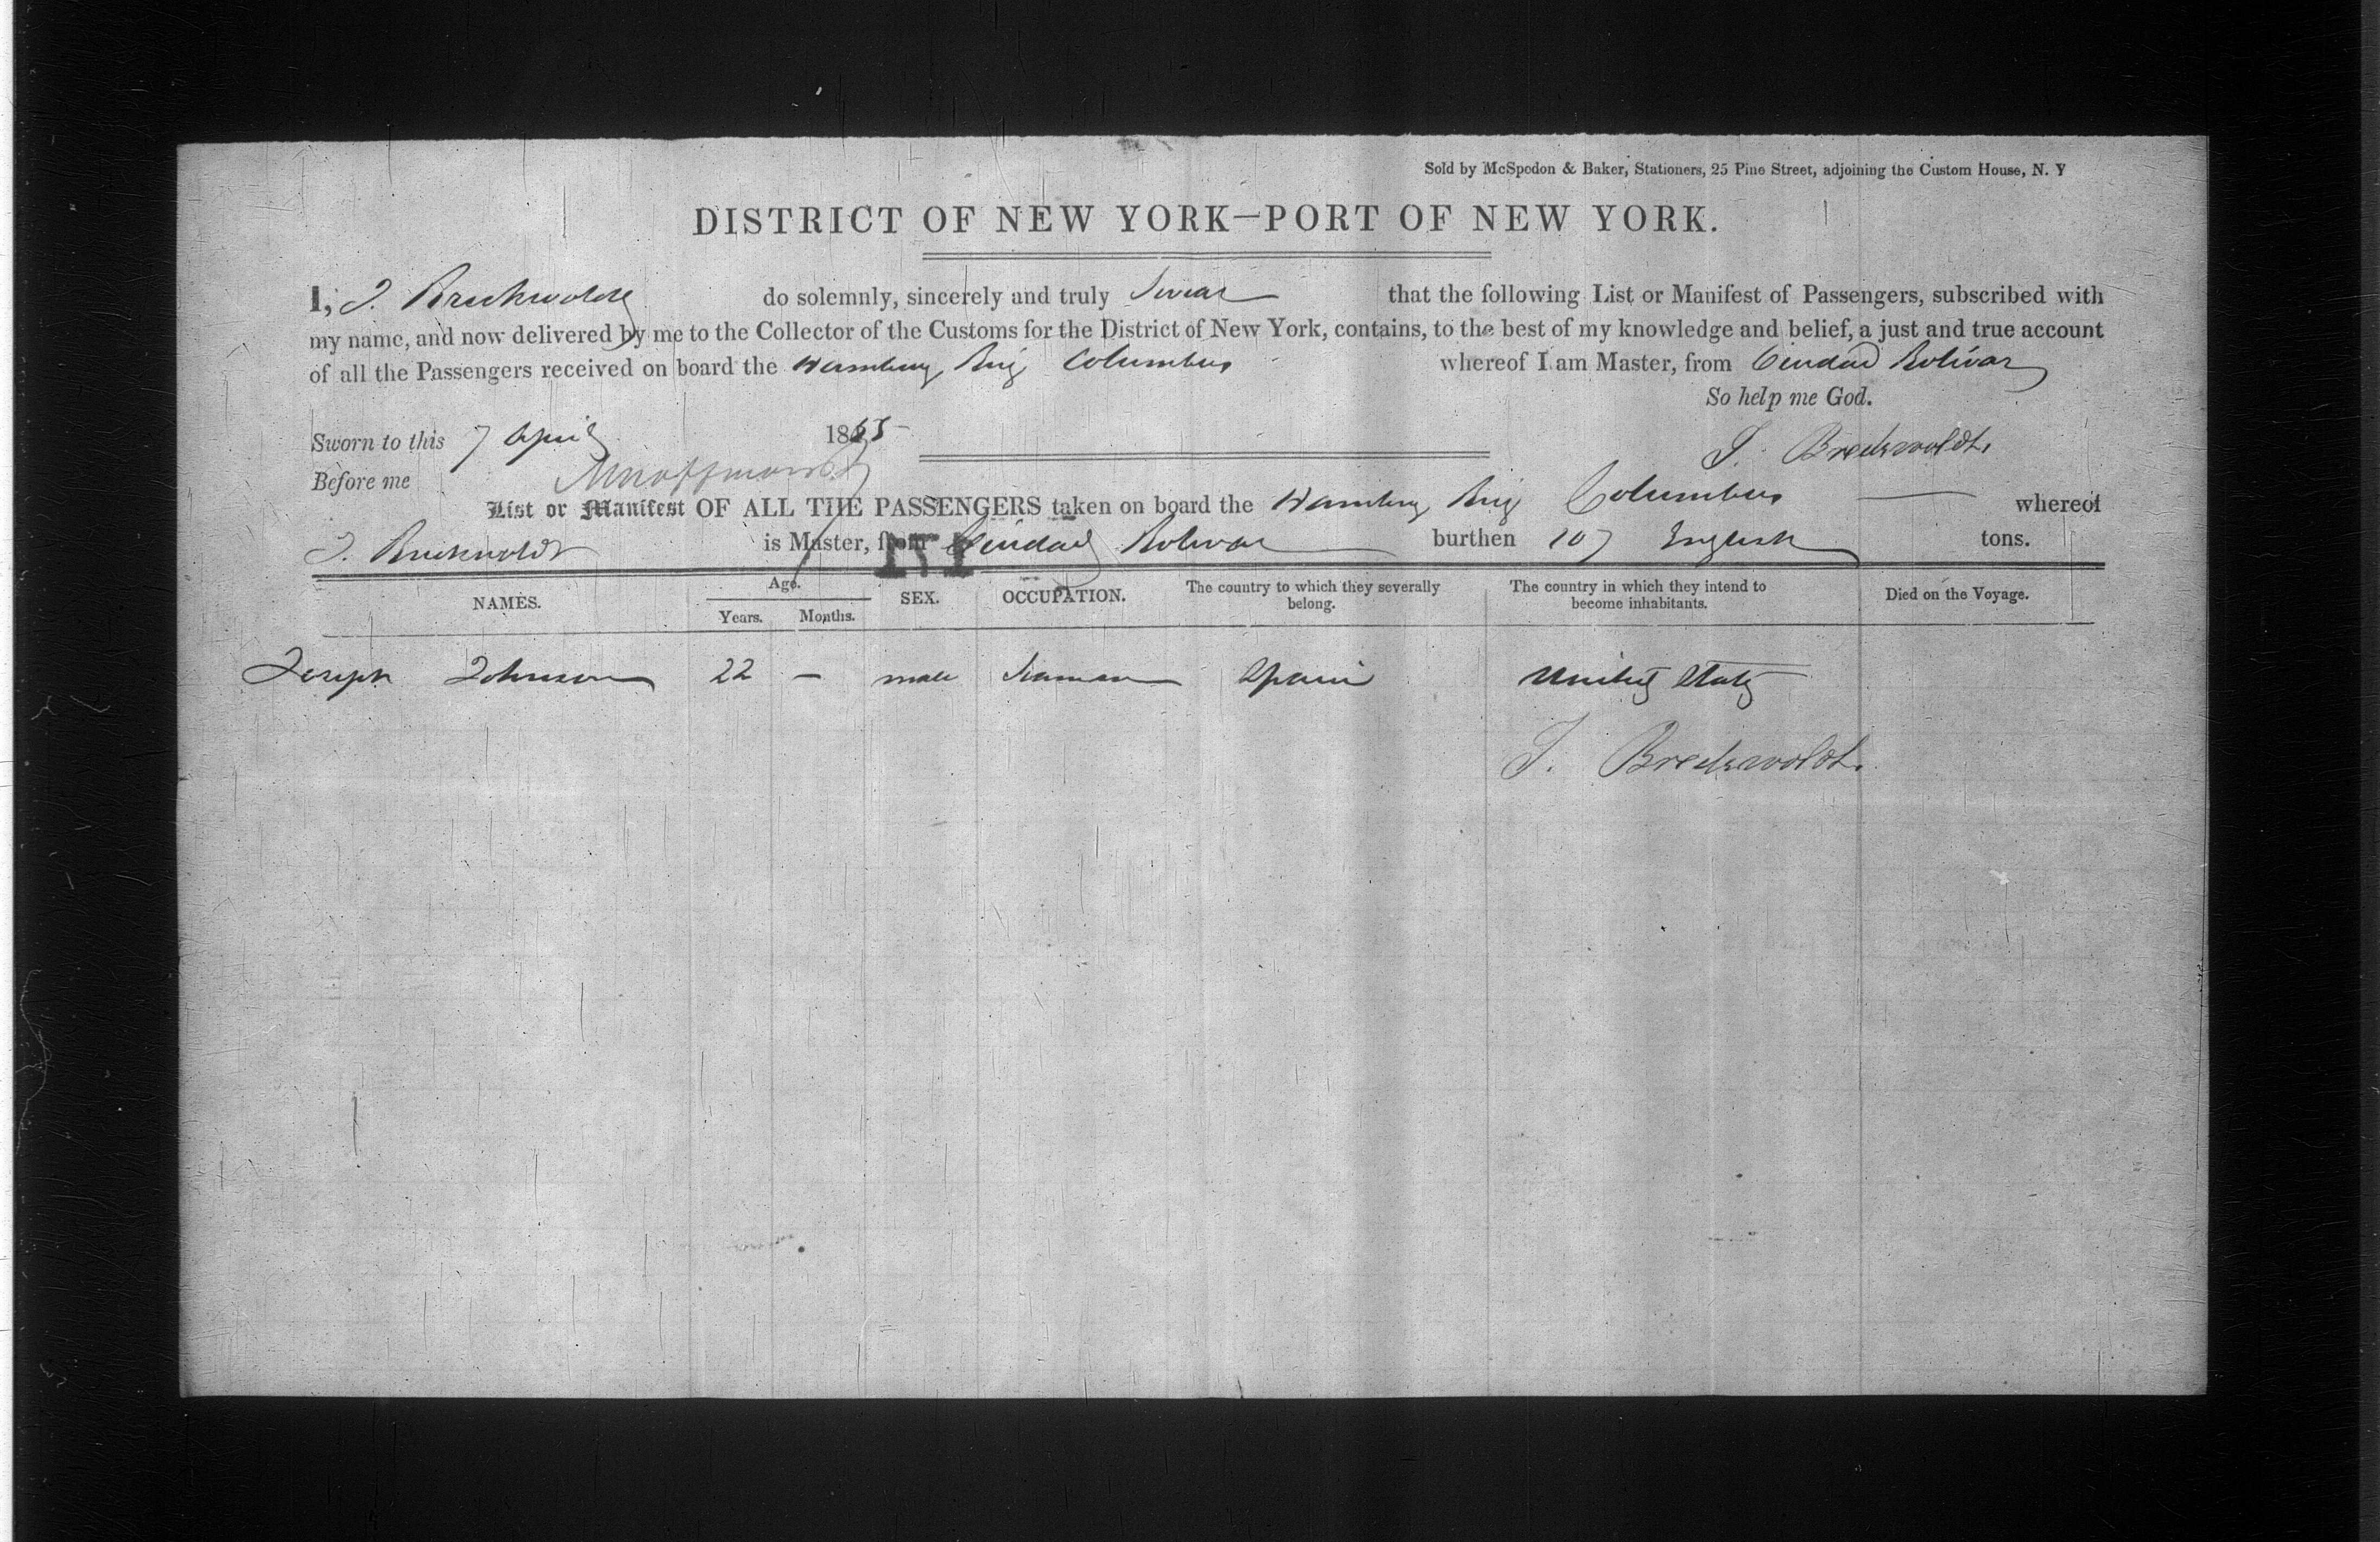 Sold by McSpedon & Baker, Stationers, 25 Pine Street, adjoining the Custom House, N. Y
DISTRICT OF NEW YORK—PORT OF NEW YORK.
I, J. Breckwoldt do solemnly, sincerely and truly swear that the following List or Manifest of Passengers, subscribed with
my name, and now delivered by me to the Collector of the Customs for the District of New York, contains, to the best of my knowledge and belief, a just and true account
of all the Passengers received on board the Hamburg Brig Columbus whereof I am Master, from Ciudad Bolivar
So help me God.
Sworn to this 7 April 1865
J. Breckwoldt.
Before me
List or Manifest OF ALL THE PASSENGERS taken on board the Hamburg Brig Columbus whereof
J. Breckwoldt is Master, from Ciudad Bolivar burthen 107 English tons.
171
NAMES. Age. Years. Months. SEX. OCCUPATION. The country to which they severally belong. The country in which they intend to become inhabitants. Died on the Voyage.
Joseph Johnson 22 — male Seaman Spain United States
J. Breckwoldt.